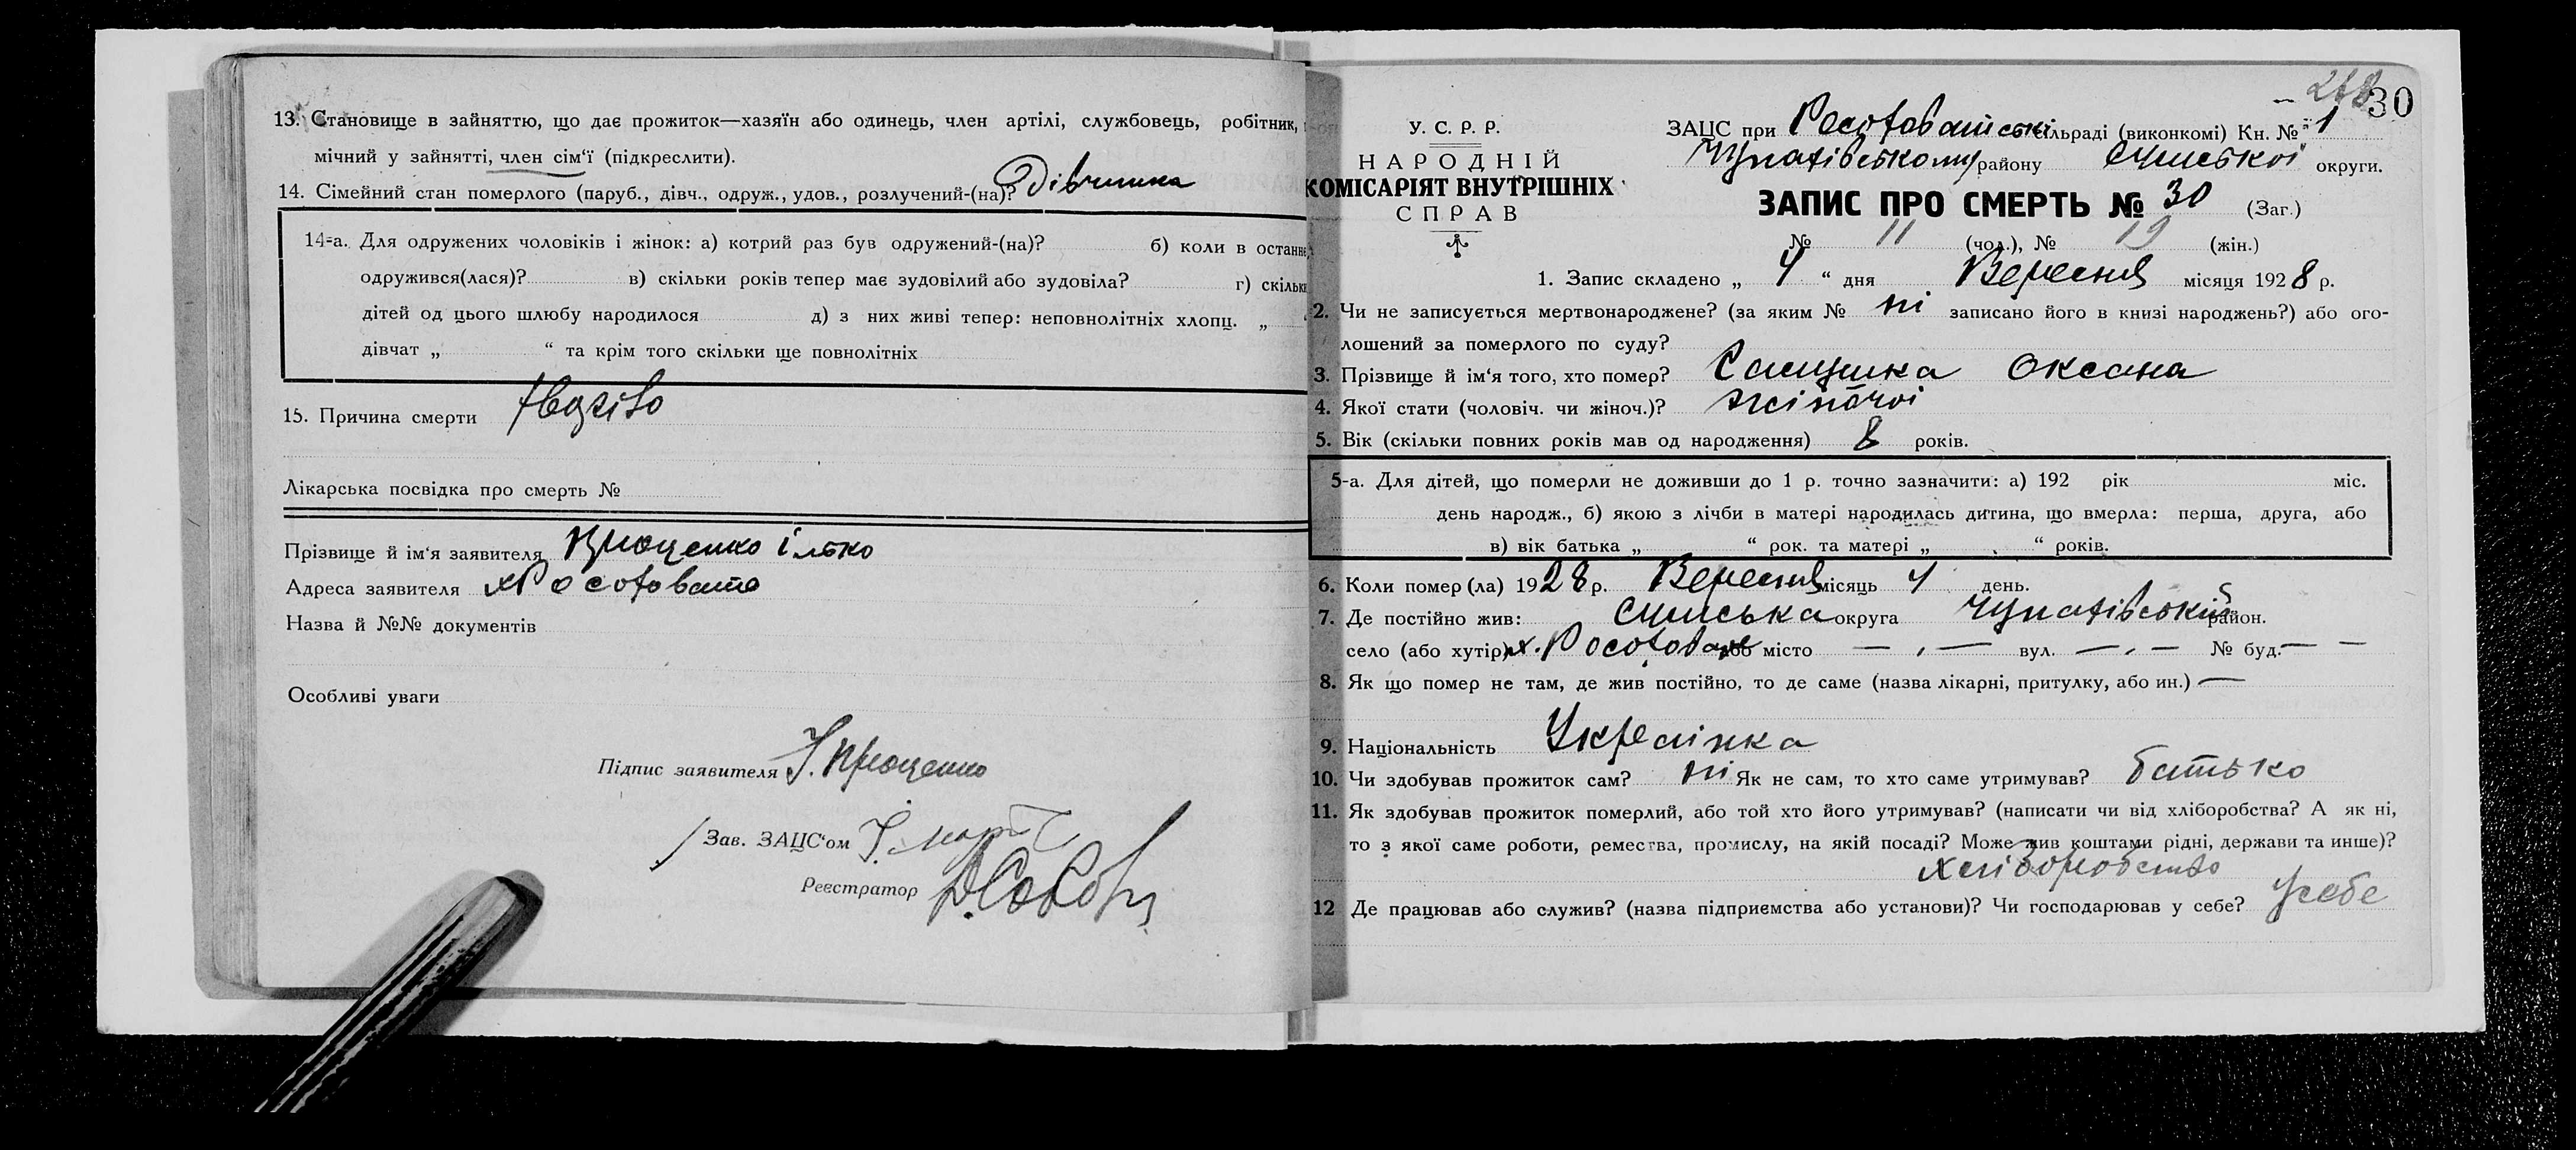 13. Становище в зайняттю, що дає прожиток—хазяїн або одинець, член артілі, службовець, робітник,
мічний у зайнятті, член сім'ї (підкреслити).
14. Сімейний стан померлого (паруб., дівч., одруж., удов., розлучений-(на)? Дівчинка
14-а. Для одружених чоловіків і жінок: а) котрий раз був одружений-(на)? б) коли в останнє
одружився(лася)? в) скільки років тепер має зудовілий або зудовіла? г) скільки
дітей од цього шлюбу народилося д) з них живі тепер: неповнолітніх хлопц. „
дівчат „ “ та крім того скільки ще повнолітніх
15. Причина смерти
Лікарська посвідка про смерть №
Прізвище й ім'я заявителя Проценко Ілько
Адреса заявителя х Росотовате
Назва й №№ документів
Особливі уваги
Підпис заявителя І. Проценко
Зав. ЗАЦС'ом
Реєстратор
30
У. С. Р. Р.
НАРОДНІЙ
КОМІСАРІЯТ ВНУТРІШНІХ
СПРАВ
ЗАЦС при сільраді (виконкомі) Кн. № 1
району Сумської округи.
ЗАПИС ПРО СМЕРТЬ № 30 (Заг.)
№ 11 (чол.), № 19 (жін.)
1. Запис складено „ 4 “ дня Вересня місяця 1928 р.
2. Чи не записується мертвонароджене? (за яким № ні записано його в книзі народжень?) або ого-
лошений за померлого по суду?
3. Прізвище й ім'я того, хто помер? Оксана
4. Якої стати (чоловіч. чи жіноч.)? жіночої
5. Вік (скільки повних років мав од народження) 8 років.
5-а. Для дітей, що померли не доживши до 1 р. точно зазначити: а) 192 рік міс.
день народж., б) якою з лічби в матері народилась дитина, що вмерла: перша, друга, або
в) вік батька „ “ рок. та матері „ “ років.
6. Коли помер (ла) 1928 р. Вересня місяць 4 день.
7. Де постійно жив: Сумська округа район.
село (або хутір) х. Росотовате або місто — . — вул. — . — № буд. — —
8. Як що помер не там, де жив постійно, то де саме (назва лікарні, притулку, або ин.) —
9. Національність Українка
10. Чи здобував прожиток сам? ні Як не сам, то хто саме утримував? батько
11. Як здобував прожиток померлий, або той хто його утримував? (написати чи від хліборобства? А як ні,
то з якої саме роботи, ремества, промислу, на якій посаді? Може жив коштами рідні, держави та инше)?
хліборобство
12 Де працював або служив? (назва підприємства або установи)? Чи господарював у себе? У себе